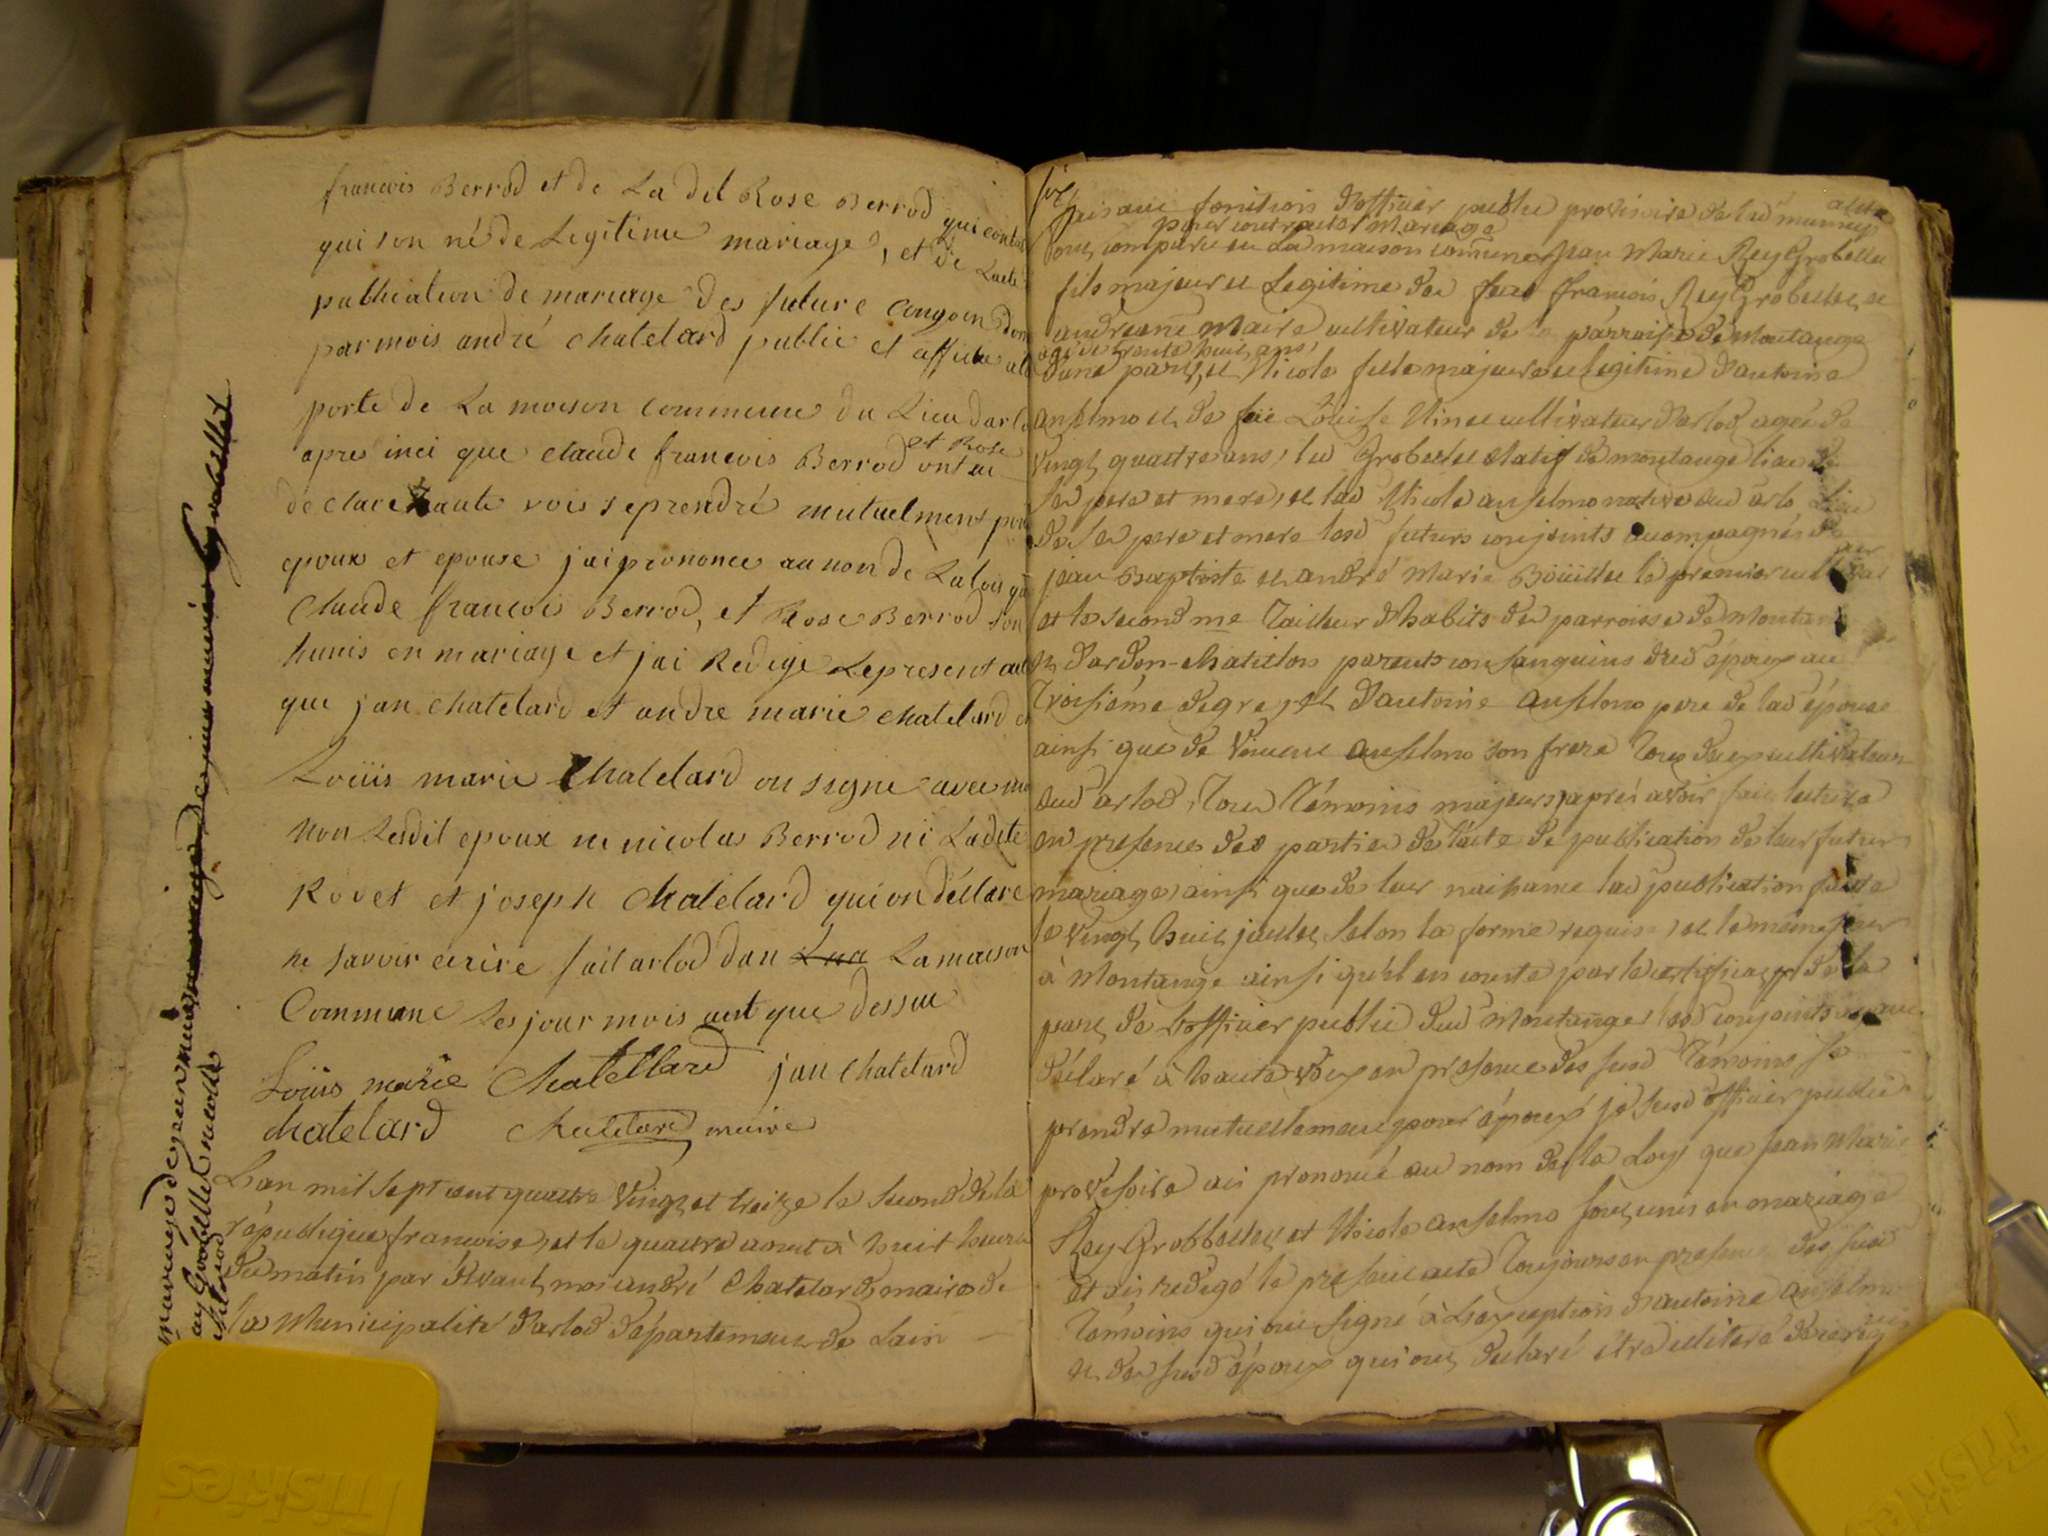 francois Berrod et de La dit Rose Berrod qui con
qui son né de Legitime mariage, et de Lacte
publication de mariage des future conjoin don
par mois andré chatelard public et affiche a
porte de La maison commune du Lieu darlo
apres inci que claude francois Berrod et Rose ont
declare haute vois se prendré mutuelment pou
epoux et epouse jai prononce au nom de La lois que
Claude francois Berrod, et Rose Berrod son
hunis en mariage et jai Redige Le present
que jan chatelard et andre marie chatelard et
Loüis marie Chatelard on signe avec mo
non Lesdit epoux ni nicolas Berrod ni Ladite
Rovet et joseph Chatelard qui on déclare
ne savoir ecrire fait arlod dan La maison
Commune Les jour mois que dessu
Loüis marie Chatellard jan chatelard
chatelard Chatelard maire
Lan mil sept cent quatre vingt et treize le second de la
république francoise, et le quatre aout à huit heure
du matin par devant moi andré Chatelard maire de
la Municipalité darlod département de Lain
mariage de jean marie
ay Grobellet nicolle
faisant fonction d'officier public provisoire de lad
pour contracter Mariage
sont comparu en la maison commune jean Marie Rey Grobellet
fils majeur et Legitime de feu francois Rey Grobellet, et
andreane Maire cultivateur de la parroisse de Montange
agé de trente huit ans
d'une part, et Nicole fille majeure et legitime d'antoine
anselmo et de feue Louise Vinet cultivateur darlod ageé de
vingt quatre ans, led Grobellet natif de montange lieu de
ses pere et mere, et lad Nicole anselmo native dud arlo Lieu
de ses pere et mere lesd futurs conjoints accompagnés de
jean Baptiste et andré Marie Boüillet le premier
et le second me Tailleur d'habits de parroisse de Montan
et d'ardon-chatillon parents consanguins dud époux au
Troisiéme degre, et d'antoine anselmo pere de lad épouse
ainsi que de Vincent anselmo son frere Tous deux cultivateurs
dud arlod, Tous Témoins majeurs, aprés avoir fait lecture
en presence des parties de l'acte de publication de leur futur
mariage, ainsi que de leur naissance lad publication faite
le vingt huit juillet, selon la forme requise, et le même jour
à Montange ainsi qu'il en conste par le certificat de la
part de lofficier public dud Montange, lesd conjoints
déclaré à haute voix en presence des susd Témoins se
prendre mutuellement pour époux je susd officier public
provisoire ai prononcé au nom de la Loy que jean Marie
Rey Grobbellet et Nicole anselmo sont unis en mariage
et ai redigé le present acte Toujours en presence des susd
Témoins qui ont signé à L'exception d'antoine anselmo
et des susd époux qui ont déclaré être illiteré de ce
Frisktes